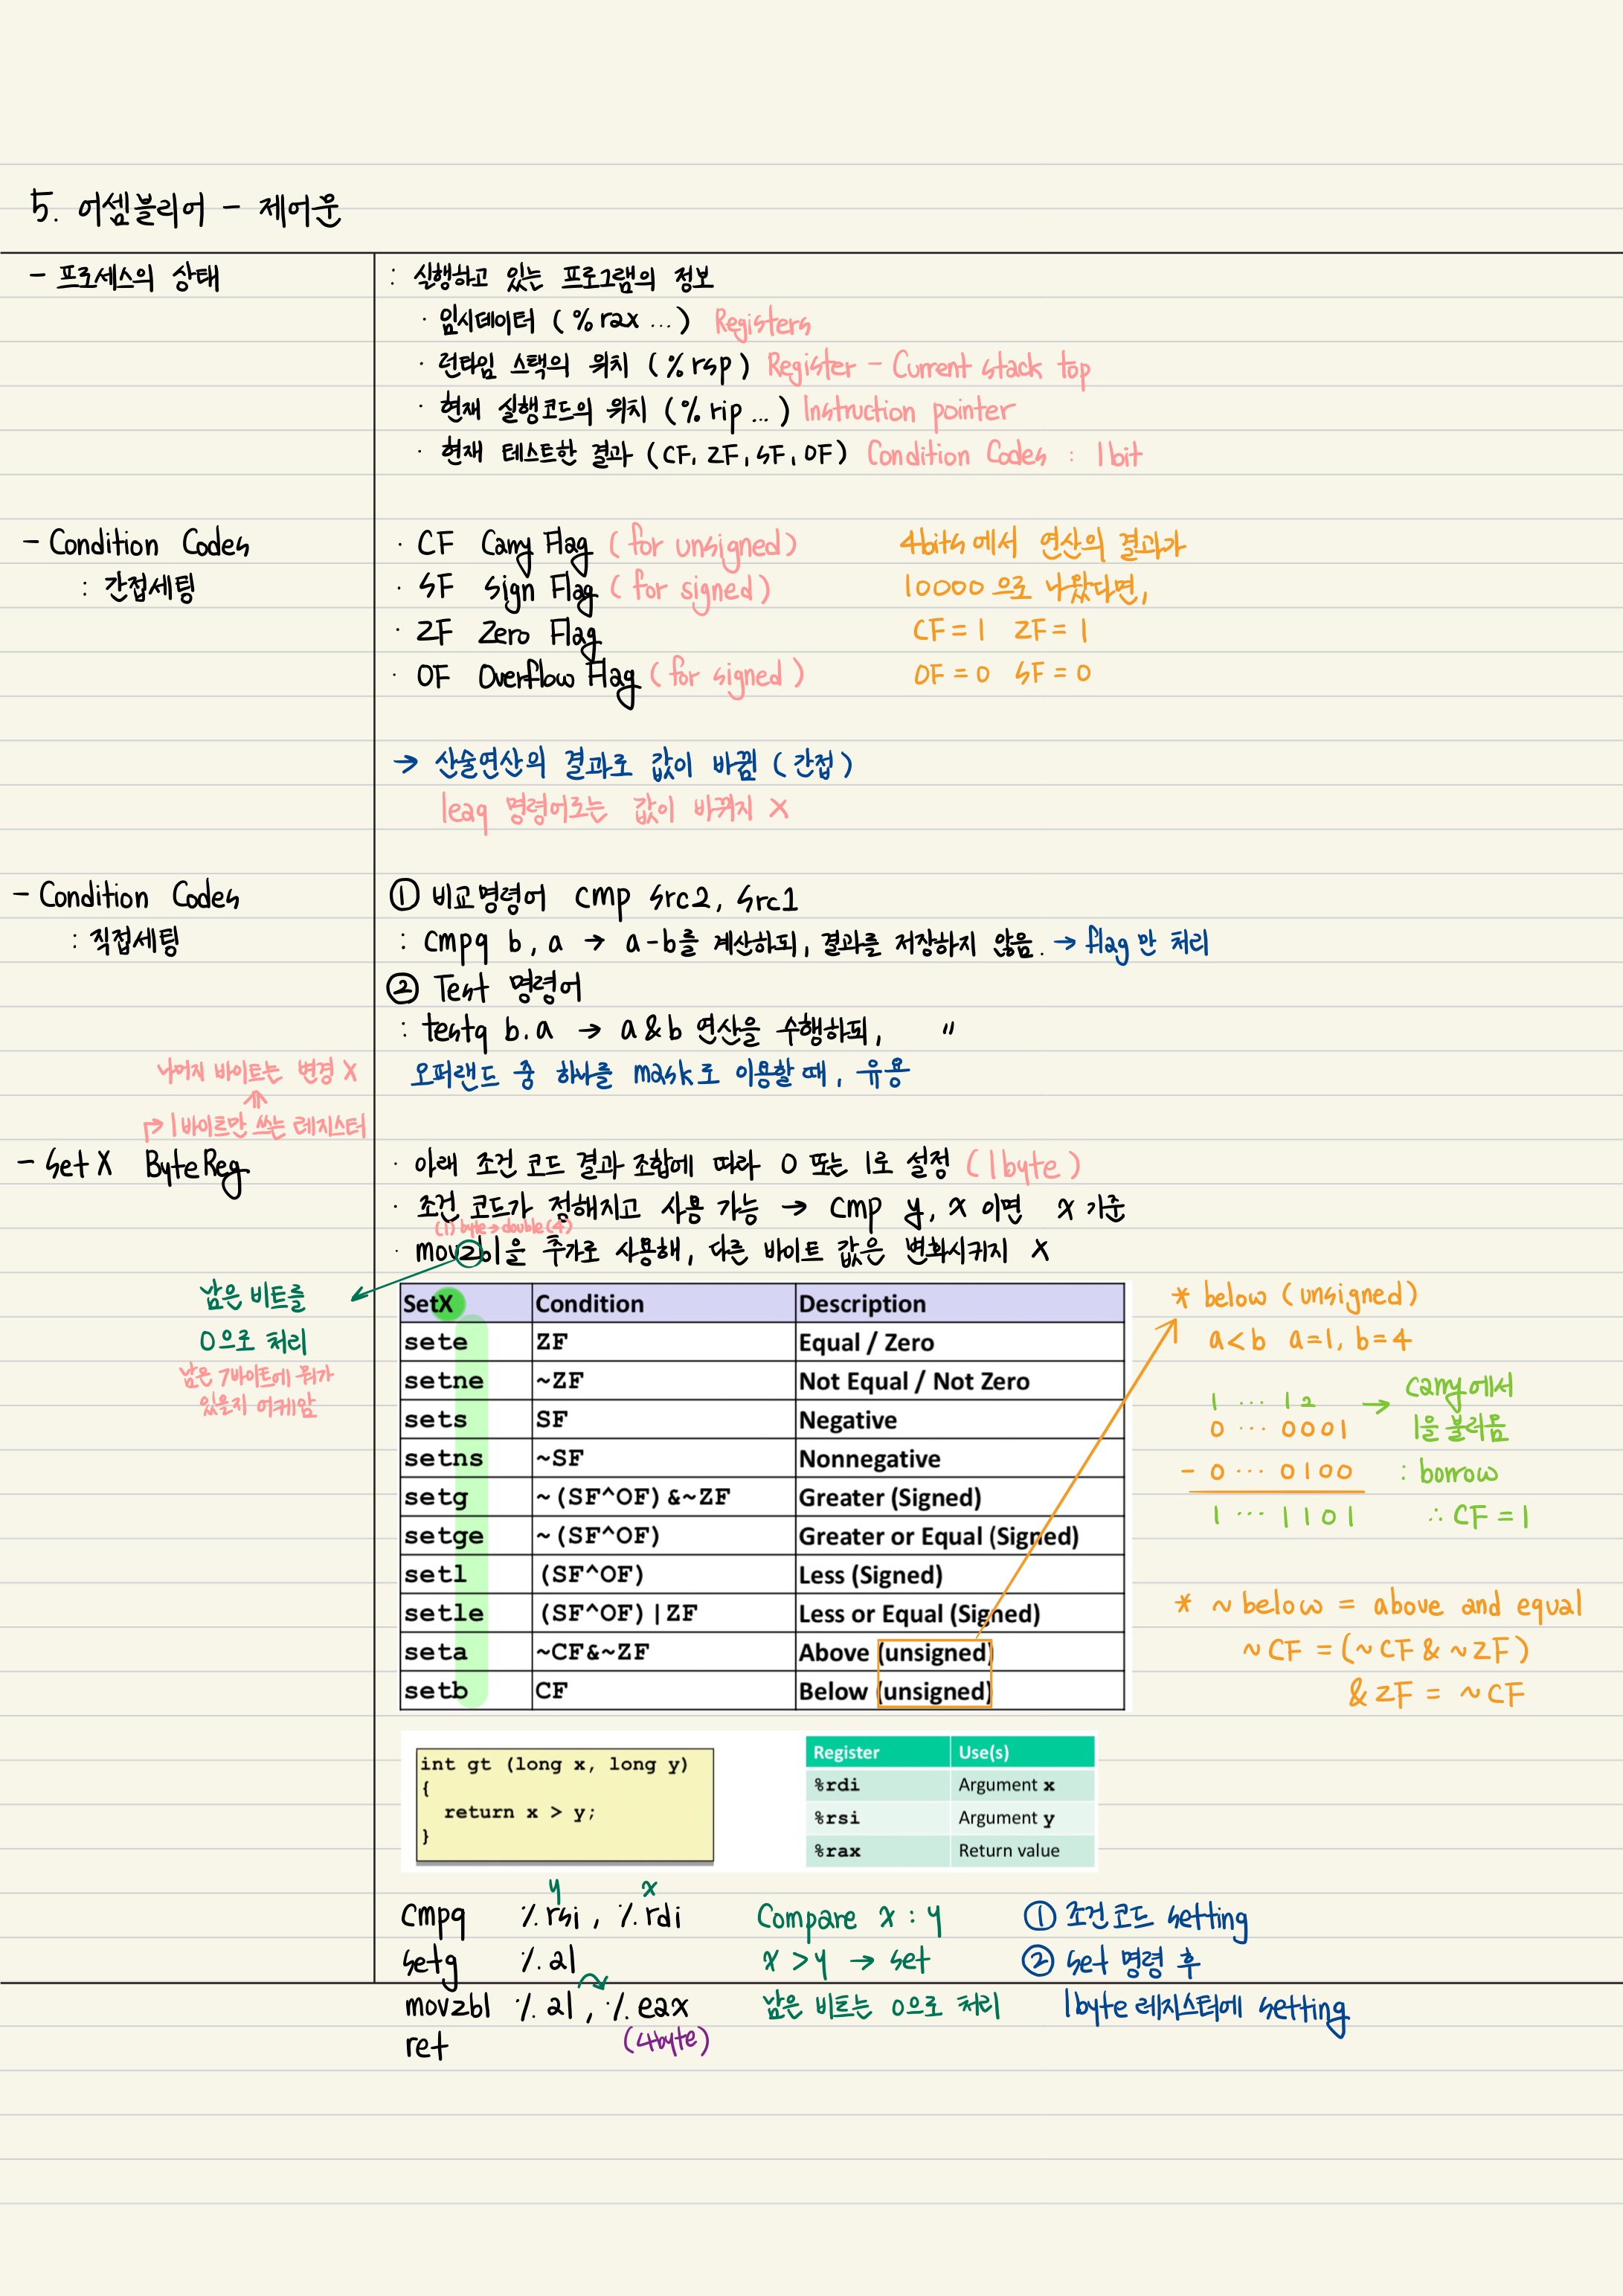 5. 어셈블리어 - 제어문
- 프로세스의 상태
: 실행하고 있는 프로그램의 정보
· 임시데이터 (%rax ...) Registers
· 런타임 스택의 위치 (%rsp) Register - Current stack top
· 현재 실행코드의 위치 (%rip ...) Instruction pointer
· 현재 테스트한 결과 (CF, ZF, SF, OF) Condition Codes : 1bit
- Condition Codes
: 간접세팅
· CF Carry Flag (for unsigned)
· SF Sign Flag (for signed)
· ZF Zero Flag
· OF Overflow Flag (for signed)
4bits에서 연산의 결과가
10000으로 나왔다면,
CF = 1 ZF = 1
OF = 0 SF = 0
→ 산술연산의 결과로 값이 바뀜 (간접)
leaq 명령어로는 값이 바뀌지 X
- Condition Codes
: 직접세팅
① 비교명령어 cmp src2, src1
: cmpq b, a → a-b를 계산하되, 결과를 저장하지 않음. → flag만 처리
② Test 명령어
: testq b.a → a&b 연산을 수행하되, "
오퍼랜드 중 하나를 mask로 이용할 때, 유용
나머지 바이트는 변경 X
⇑
↱ 1바이트만 쓰는 레지스터
- Set X ByteReg
· 아래 조건 코드 결과 조합에 따라 0 또는 1로 설정 (1byte)
· 조건 코드가 정해지고 사용 가능 → cmp y, x 이면 x 기준
(1) byte → double(4)
· movzbl을 추가로 사용해, 다른 바이트 값은 변화시키지 X
남은 비트를
0으로 처리
남은 7바이트에 뭐가
있을지 어케암
SetX Condition Description
sete ZF Equal / Zero
setne ~ZF Not Equal / Not Zero
sets SF Negative
setns ~SF Nonnegative
setg ~(SF^OF)&~ZF Greater (Signed)
setge ~(SF^OF) Greater or Equal (Signed)
setl (SF^OF) Less (Signed)
setle (SF^OF)|ZF Less or Equal (Signed)
seta ~CF&~ZF Above (unsigned)
setb CF Below (unsigned)
* below (unsigned)
a<b a=1, b=4
1 ... 1 2 → carry에서
0 ... 0001 1을 불러옴
- 0 ... 0100 : borrow
1 ... 1101 ∴ CF = 1
* ~below = above and equal
~CF = (~CF & ~ZF)
& ZF = ~CF
int gt (long x, long y)
{
return x > y;
}
Register Use(s)
%rdi Argument x
%rsi Argument y
%rax Return value
y x
cmpq %rsi, %rdi Compare x : y ① 조건코드 setting
setg %al x > y → set ② set 명령 후
movzbl %al, %eax 남은 비트는 0으로 처리 1byte 레지스터에 setting
ret (4byte)